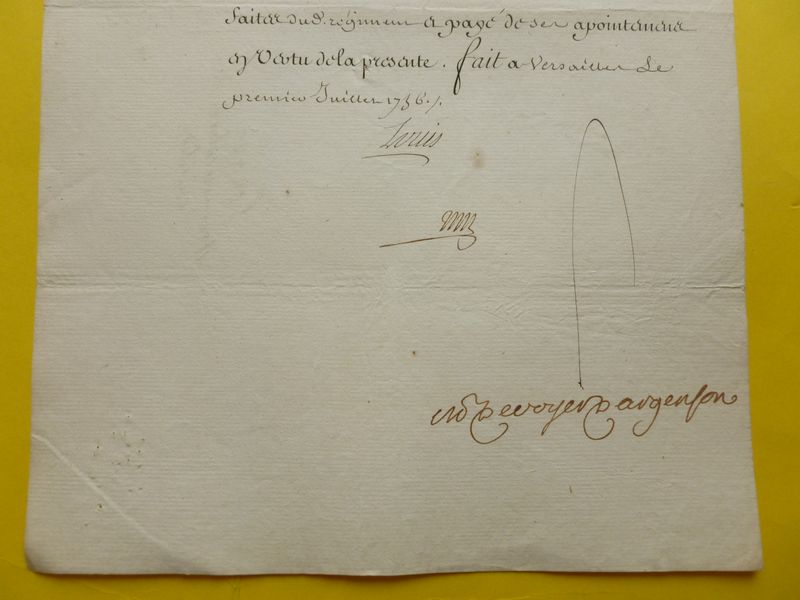 faites dud. regiment et payé de ses apointemens
en Vertu de la presente. fait a Versailles Le
premier Juillet 1756./.
Louis
De voyer D argenson